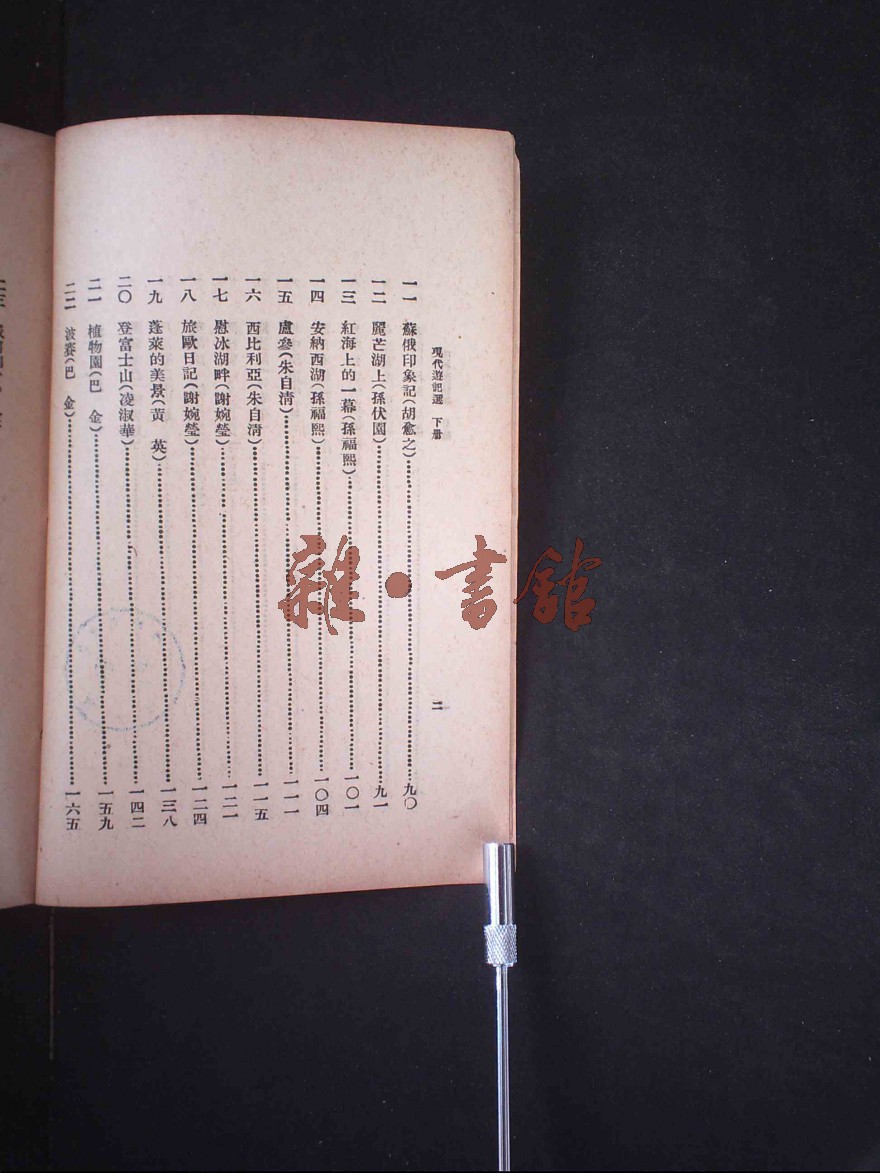 現代遊記選 下册
二
一一 蘇俄印象記(胡愈之)……九〇
一二 麗芒湖上(孫伏園)……九一
一三 紅海上的一幕(孫福熙)……一〇一
一四 安納西湖(孫福熙)……一〇四
一五 盧參(朱自清)……一一一
一六 西比利亞(朱自清)……一一五
一七 慰冰湖畔(謝婉瑩)……一二一
一八 旅歐日記(謝婉瑩)……一二四
一九 蓬萊的美景(黃 英)……一三八
二〇 登富士山(凌淑華)……一四二
二一 植物園(巴 金)……一五九
二二 波賽(巴 金)……一六五
雜·書舘